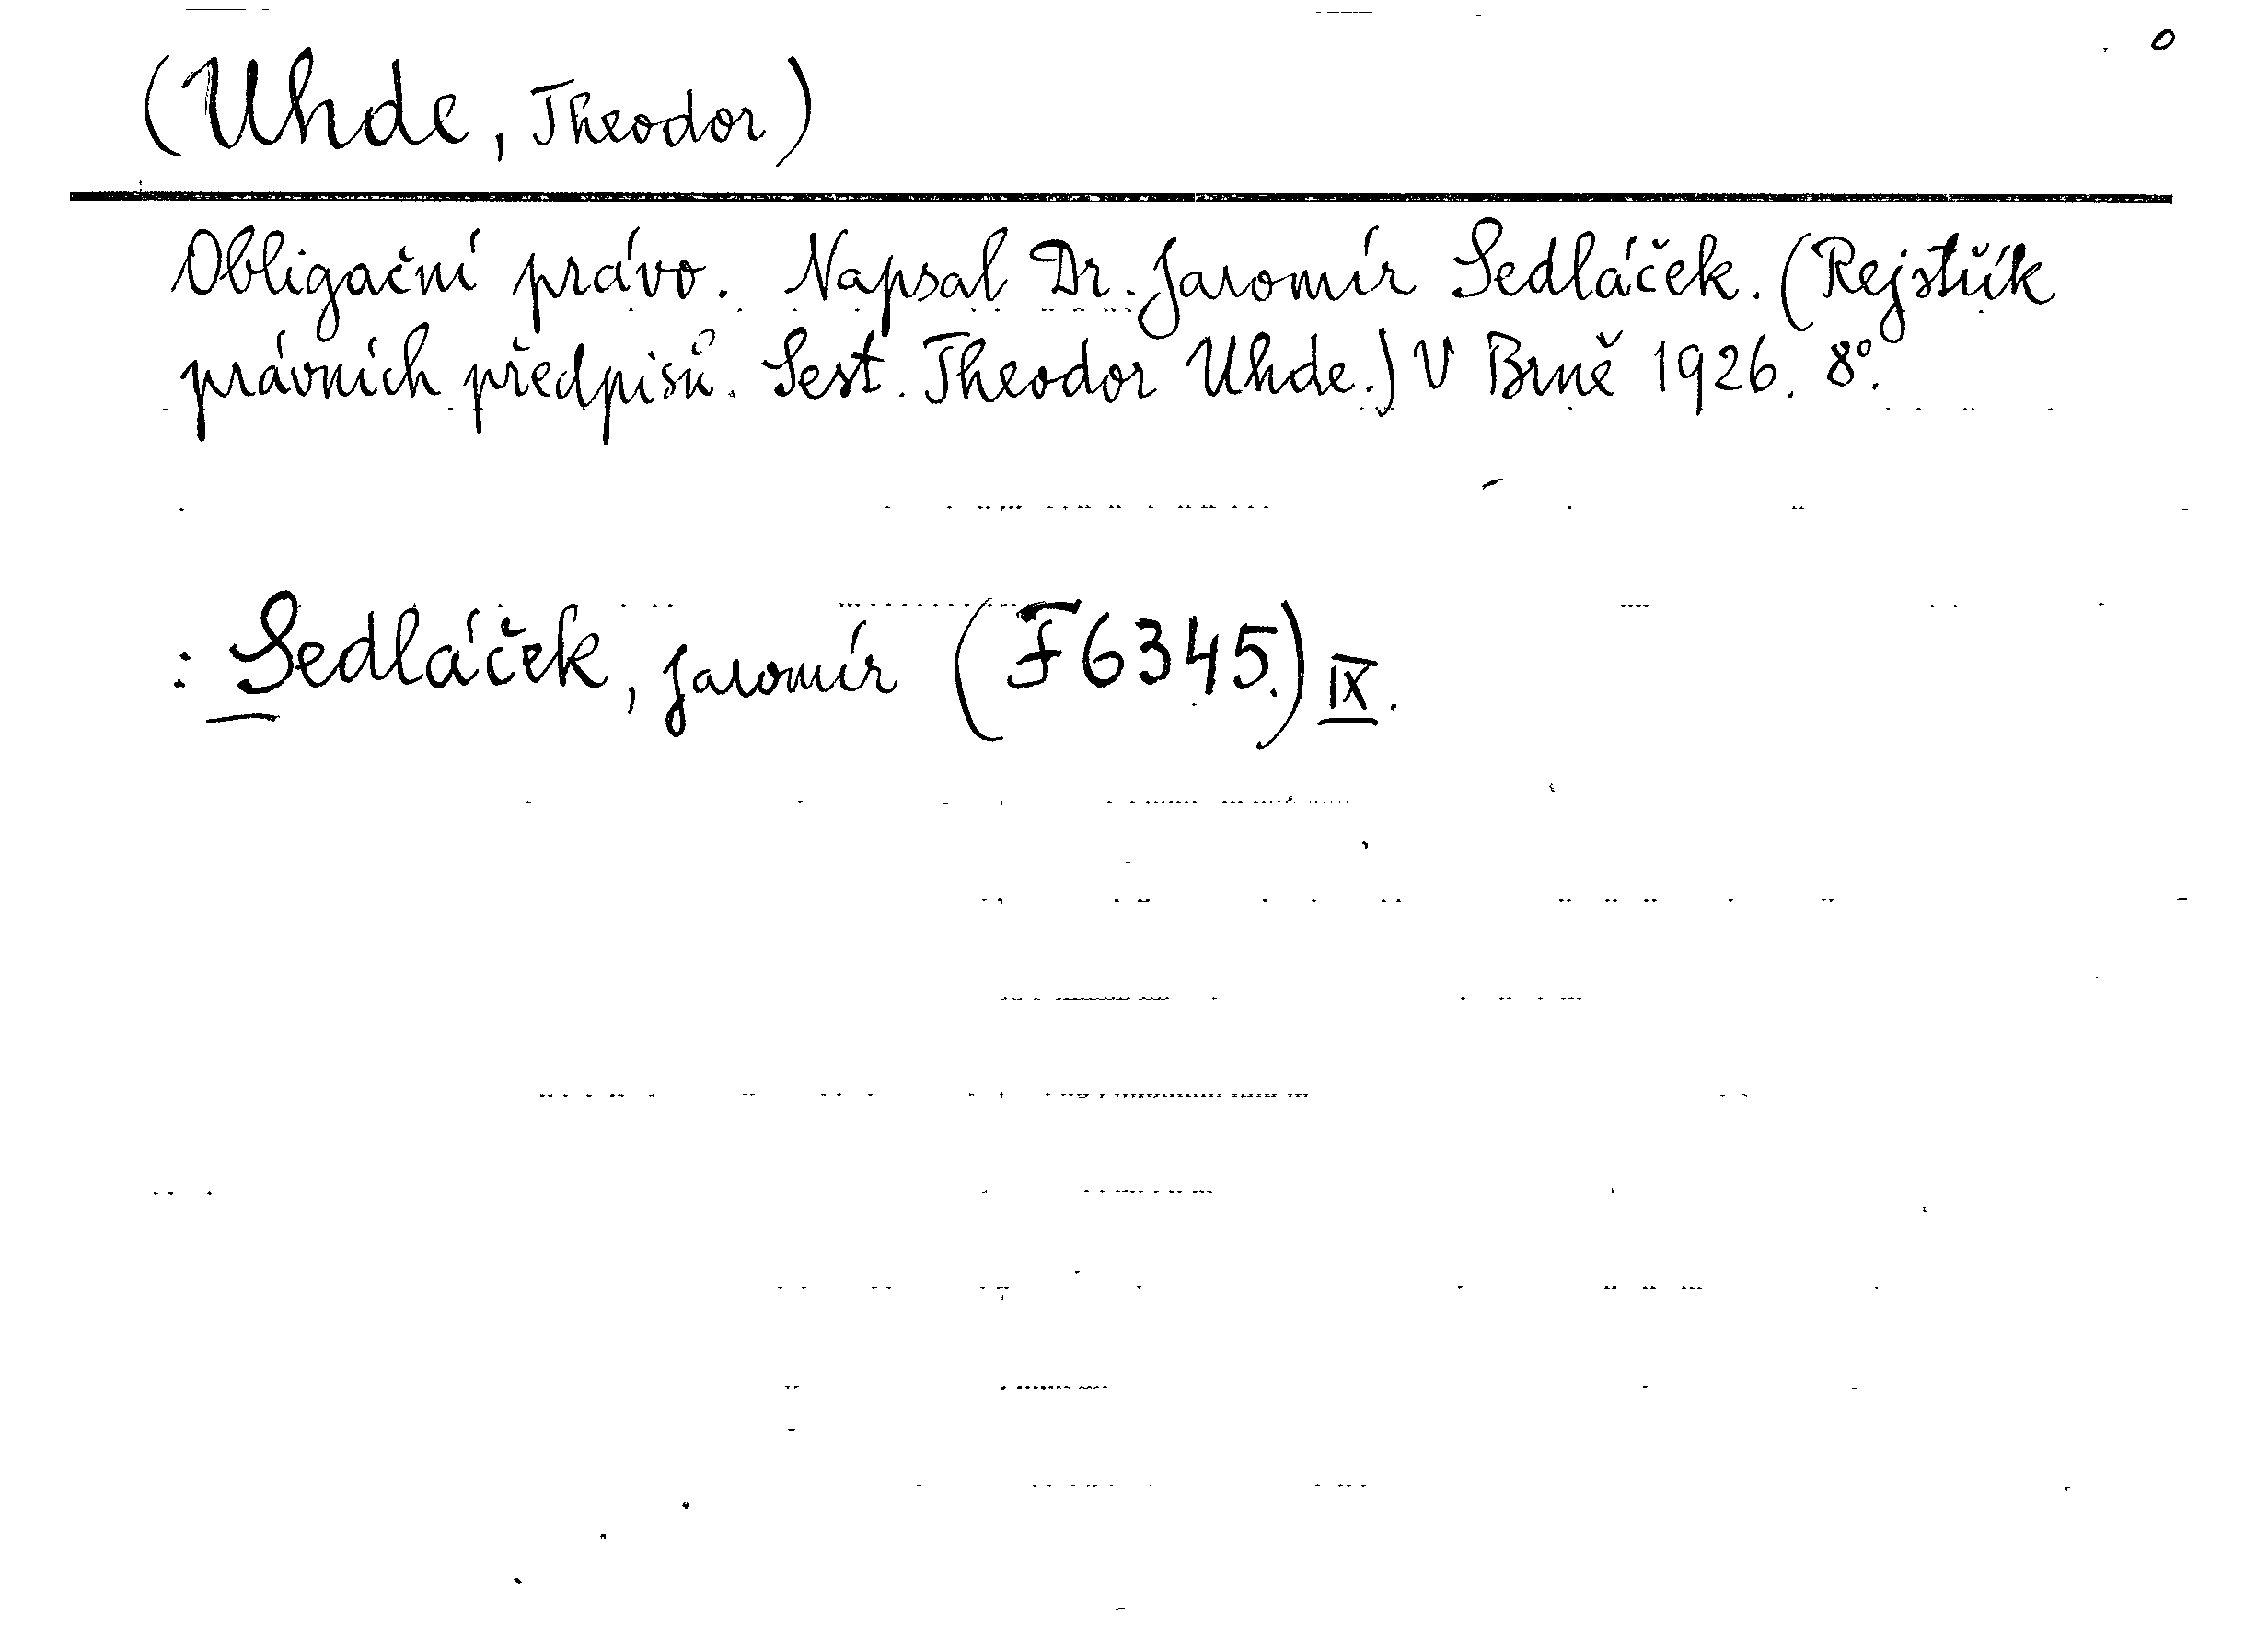 o
(Uhde, Theodor)
Obligační právo. Napsal Dr. Jaromír Sedláček. (Rejstřík
právních předpisů. Sest. Theodor Uhde.) V Brně 1926. 8°.
: Sedláček, Jaromír (F6345.) IX.